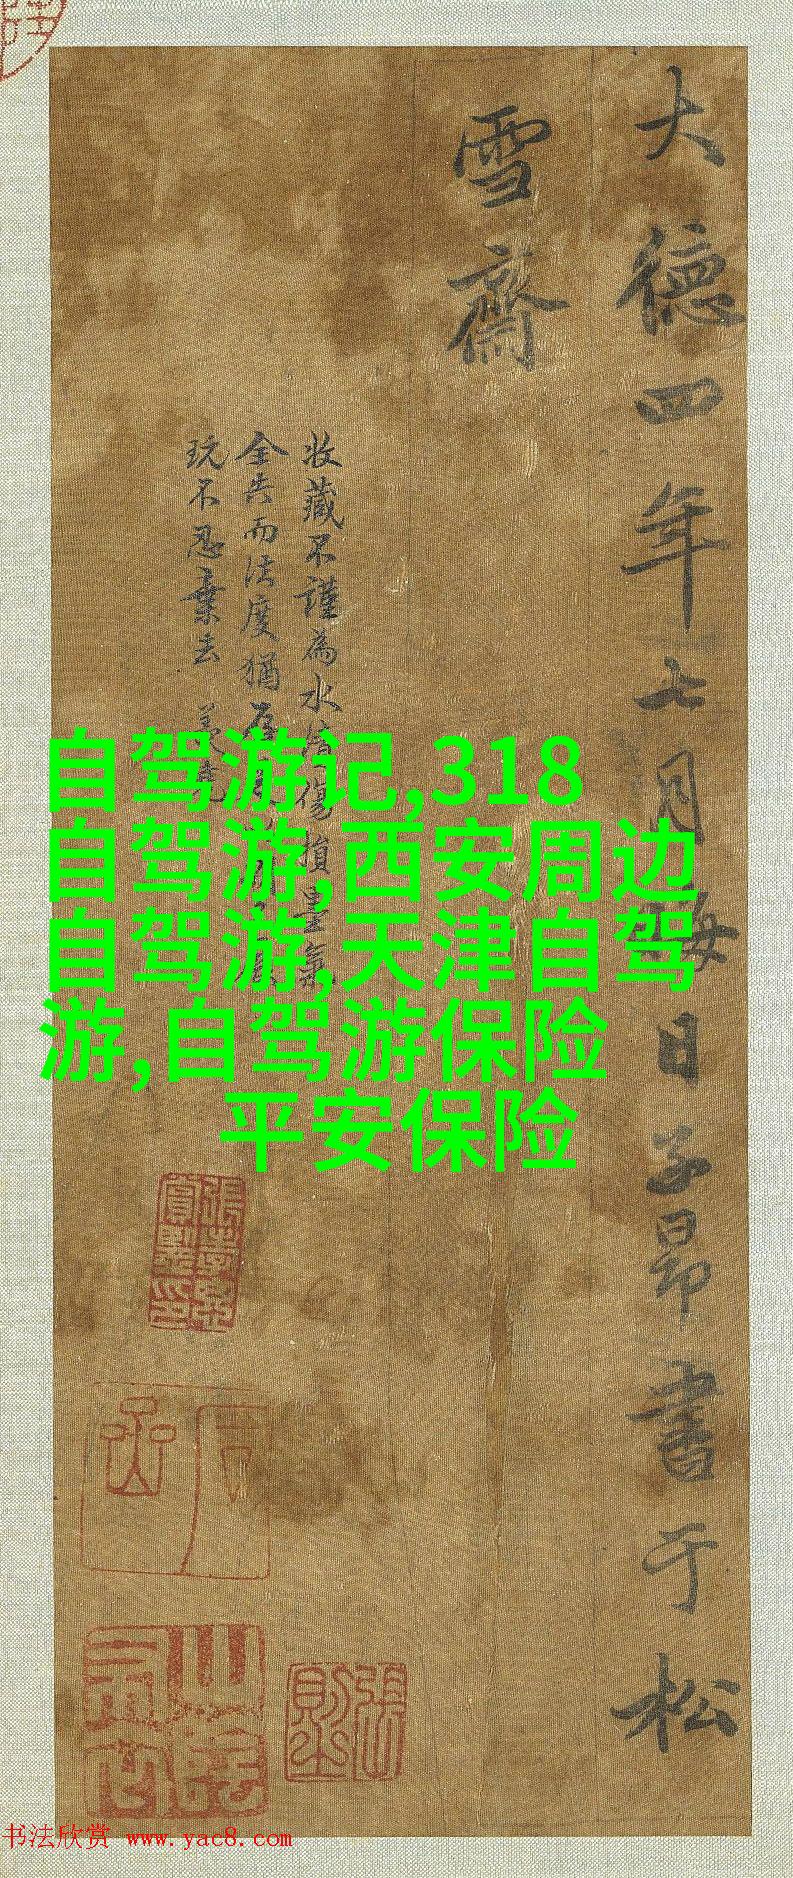 大德四年七月晦日子昂書于松
雪齋
收藏不謹為水漬傷損墨氣
全失而法度猶
玩不忍棄去
自驾游记,318
自驾游,西安周边
自驾游,天津自驾
游,自驾游保险
平安保险
书法欣赏 www.yac8.com